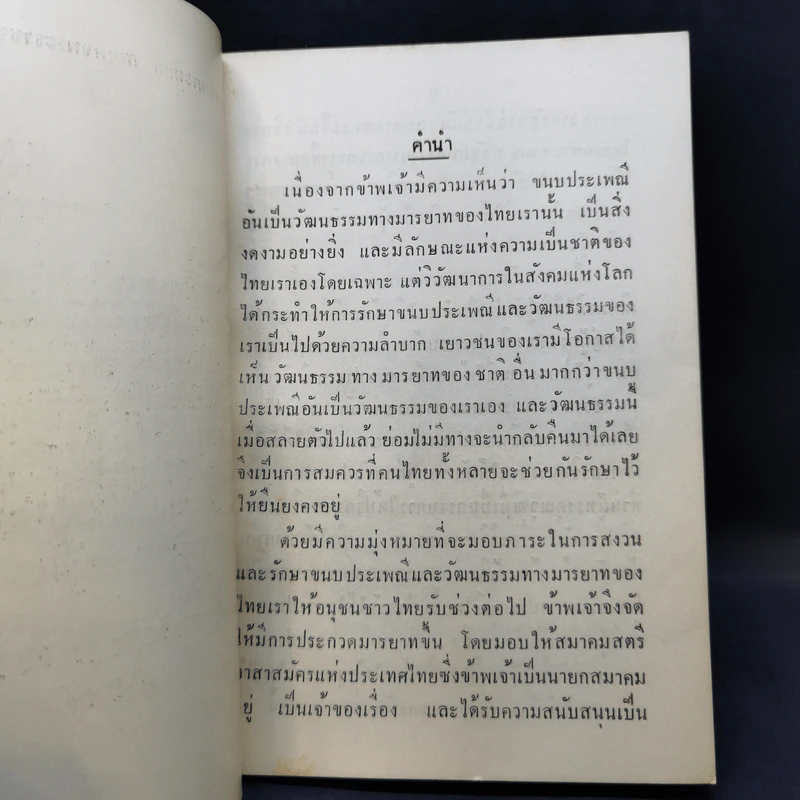 คำนำ
เนื่องจากข้าพเจ้ามีความเห็นว่า ขนบประเพณี
อันเป็นวัฒนธรรมทางมารยาทของไทยเรานั้น เป็นสิ่ง
งดงามอย่างยิ่ง และมีลักษณะแห่งความเป็นชาติของ
ไทยเราเองโดยเฉพาะ แต่วิวัฒนาการในสังคมแห่งโลก
ได้กระทำให้การรักษาขนบประเพณีและวัฒนธรรมของ
เราเป็นไปด้วยความลำบาก เยาวชนของเรามีโอกาสได้
เห็น วัฒนธรรม ทาง มารยาทของ ชาติ อื่น มากกว่าขนบ
ประเพณีอันเป็นวัฒนธรรมของเราเอง และวัฒนธรรมนี้
เมื่อสลายตัวไปแล้ว ย่อมไม่มีทางจะนำกลับคืนมาได้เลย
จึงเป็นการสมควรที่คนไทยทั้งหลายจะช่วยกันรักษาไว้
ให้ยืนยงคงอยู่
ด้วยมีความมุ่งหมายที่จะมอบภาระในการสงวน
และรักษาขนบประเพณีและวัฒนธรรมทางมารยาทของ
ไทยเราให้อนุชนชาวไทยรับช่วงต่อไป ข้าพเจ้าจึงจัด
ให้มีการประกวดมารยาทขึ้น โดยมอบให้สมาคมสตรี
อาสาสมัครแห่งประเทศไทยซึ่งข้าพเจ้าเป็นนายกสมาคม
อยู่ เป็นเจ้าของเรื่อง และได้รับความสนับสนุนเป็น